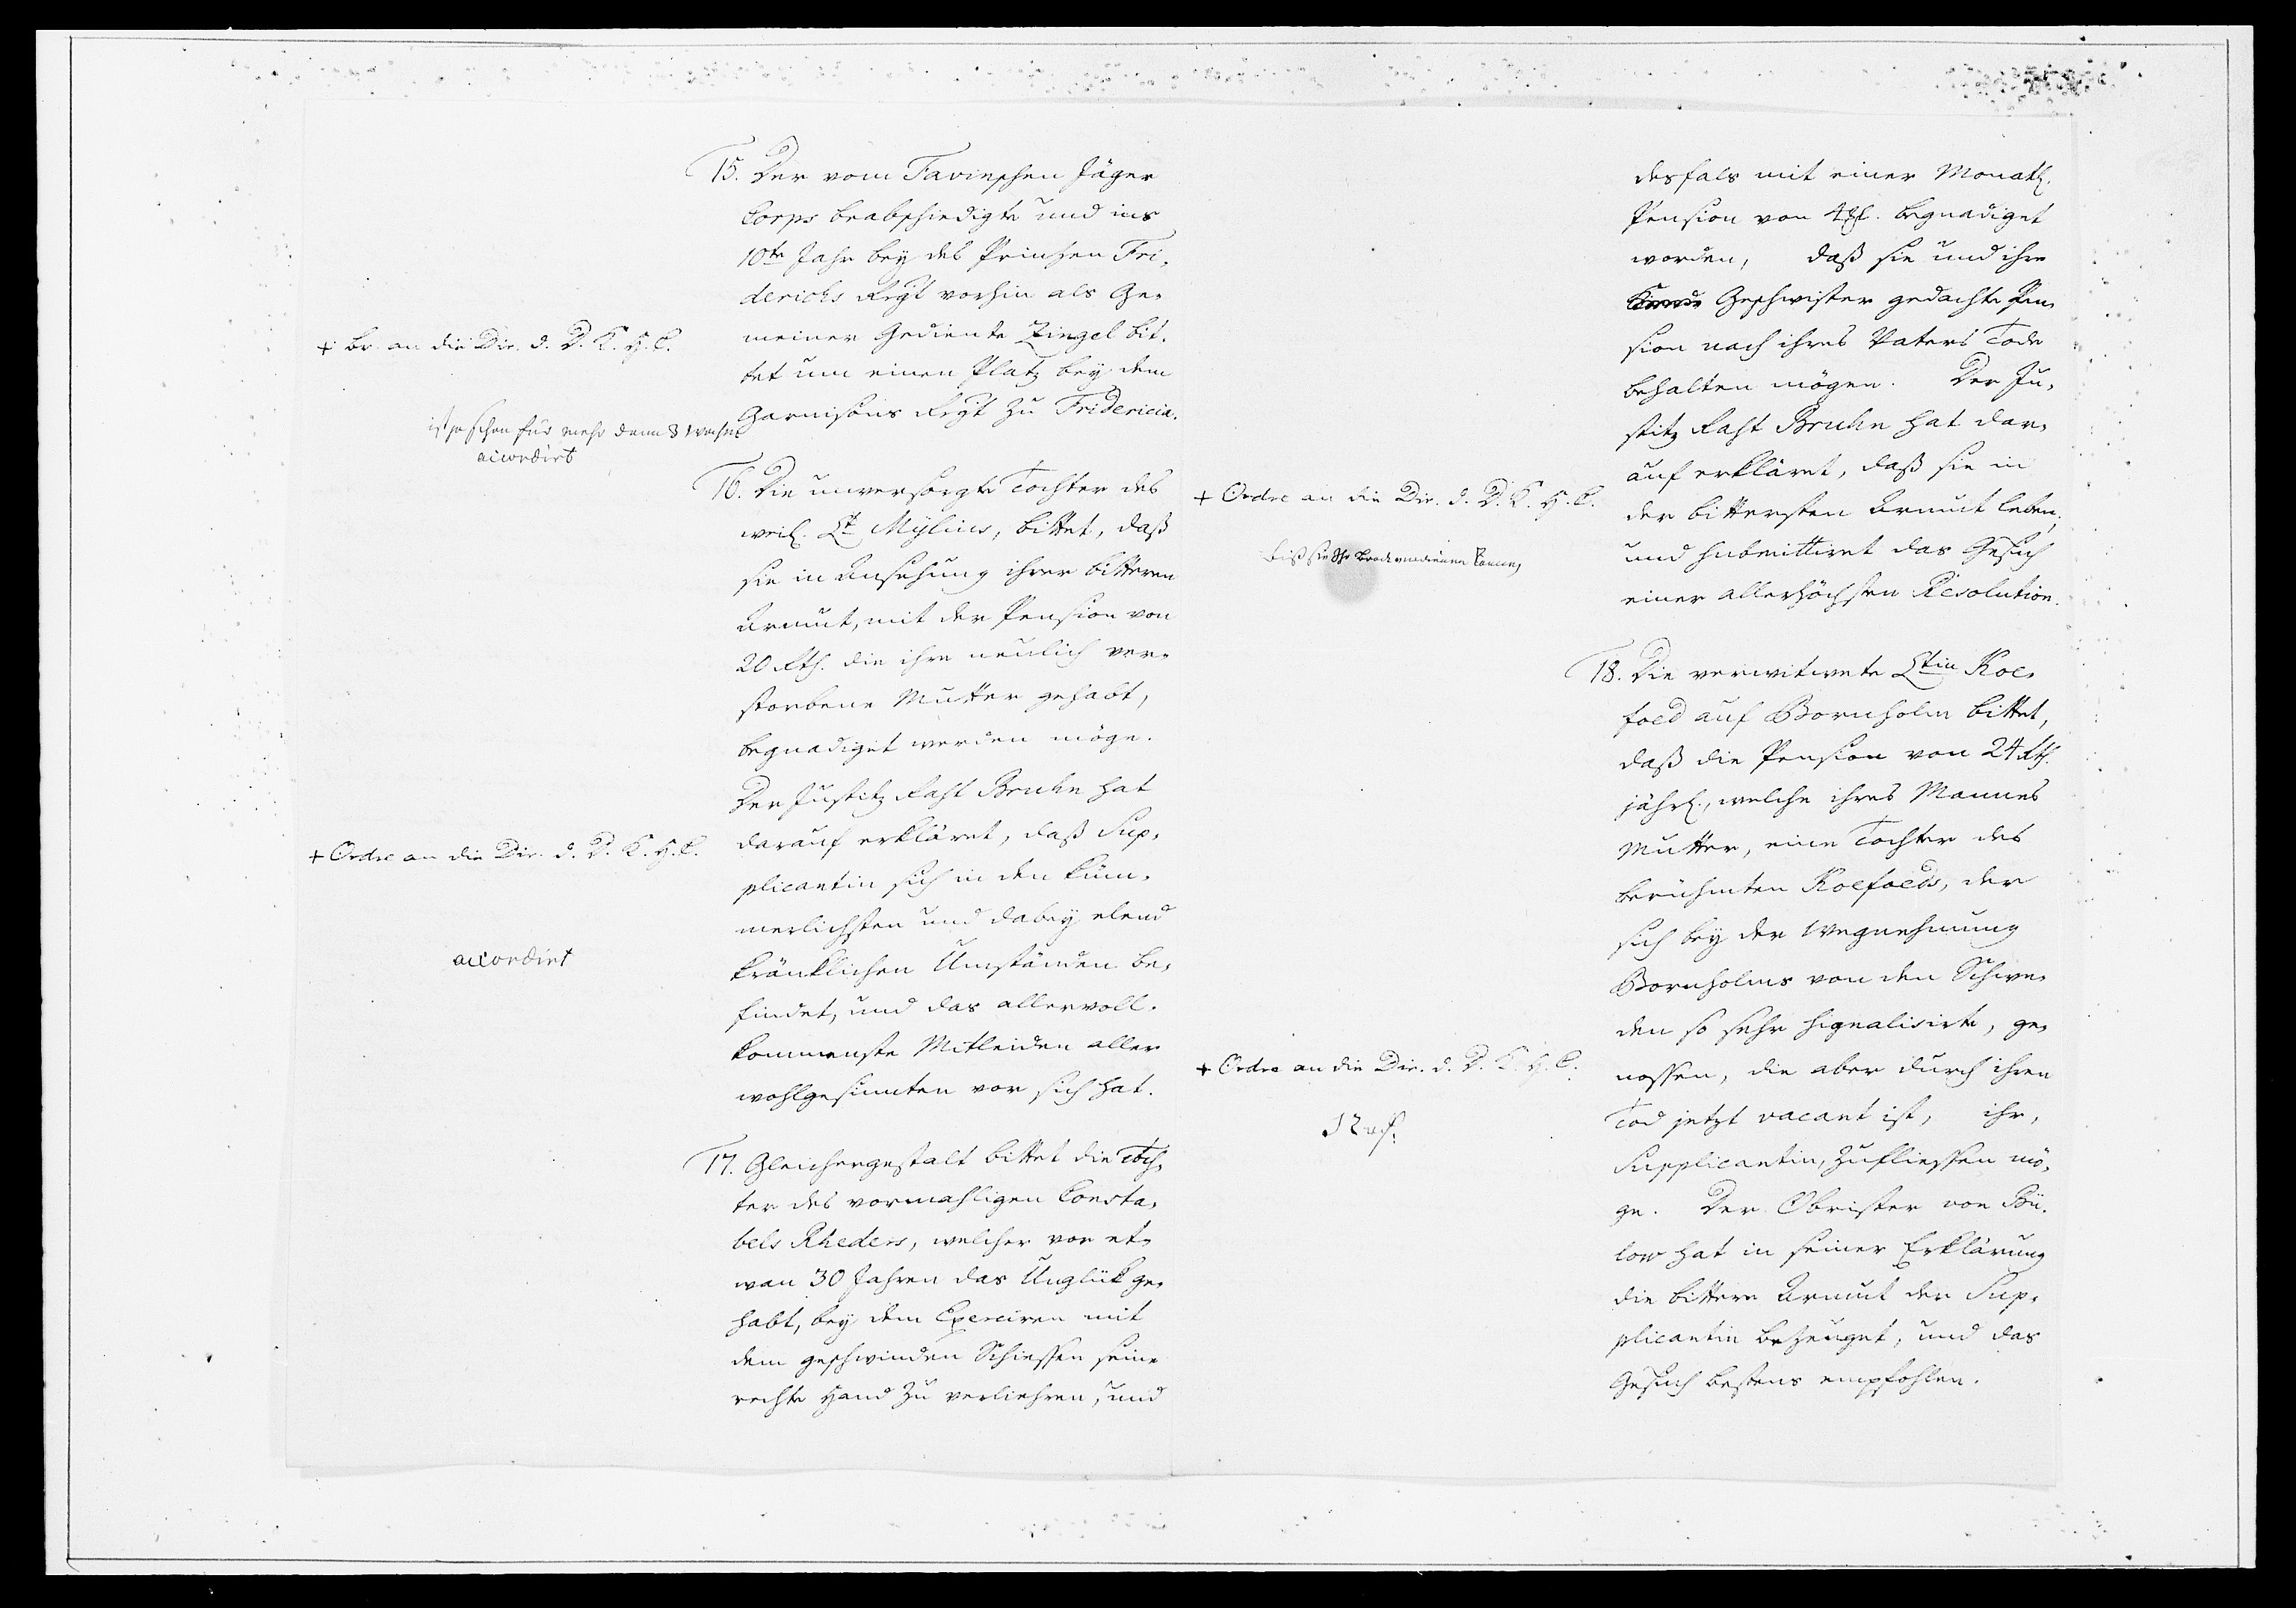 15. Der vom Favieschen Jäger
Corps beabschiedigte und ins
10te Jahr bey des Prinzen Fri-
derichs Regt vorhin als Ge-
meiner Gediente Ziegel bit-
tet um einen Platz bey dem
Garnisons Regt zu Fridericia.
+ Br. an die Dir. d. D. K. H. C.
ist ja schon für mehr denn 8 Wochen
accordirt
16. Die unversorgte Tochter des
weil. Lt Mylius, bittet, daß
sie in Ansehung ihrer bitteren
Armut, mit der Pension von
20 Rth. die ihre neulich ver-
storbene Mutter gehabt,
begnadiget werden möge.
Der Justitz Raht Bruhn hat
darauf erkläret, daß Sup-
plicantin sich in den küm-
merlichsten und dabey elend
kränklichen Umständen be-
findet, und das allervoll-
kommenste Mitleiden aller
wohlgesinnten vor sich hat.
+ Ordre an die Dir. d. D. K. H. C.
accordirt
17. Gleichergestalt bittet die Toch-
ter des vormahligen Consta-
bels Rheders, welcher vor et-
wan 30 Jahren das Unglük ge-
habt, bey dem Exerciren mit
dem geschwinden Schiessen seine
rechte Hand zu verliehren, und
desfals mit einer Monatl.
Pension von 4 begnadiget
worden, daß sie und ihre
Geschwister gedachte Pen-
sion nach ihres Vaters Tode
behalten mögen. Der Ju-
stitz Raht Bruhn hat dar-
auf erkläret, daß sie in
der bittersten Armut leben,
und submittiret das Gesuch
einer allerhöchsten Resolution.
+ Ordre an die Dir. d. D. K. H. C.
biß sie Ihr Brodt verdienen kann,
18. Die verwitwete Ltin Koe-
foed auf Bornholm bittet,
daß die Pension von 24 Rth.
jährl., welche ihres Mannes
Mutter, eine Tochter des
berühmten Koefoeds, der
sich bey der Wegnehmung
Bornholms von den Schwe-
den so sehr signalisirte, ge-
nossen, die aber durch ihren
Tod jetzt vacant ist, ihr,
Supplicantin, zufliessen mö-
ge. Der Obrister von Bü-
low hat in seiner Erklärung
die bittere Armut der Sup-
plicantin bezeuget, und das
Gesuch bestens empfohlen.
+ Ordre an die Dir. d. D. K. H. C.
12